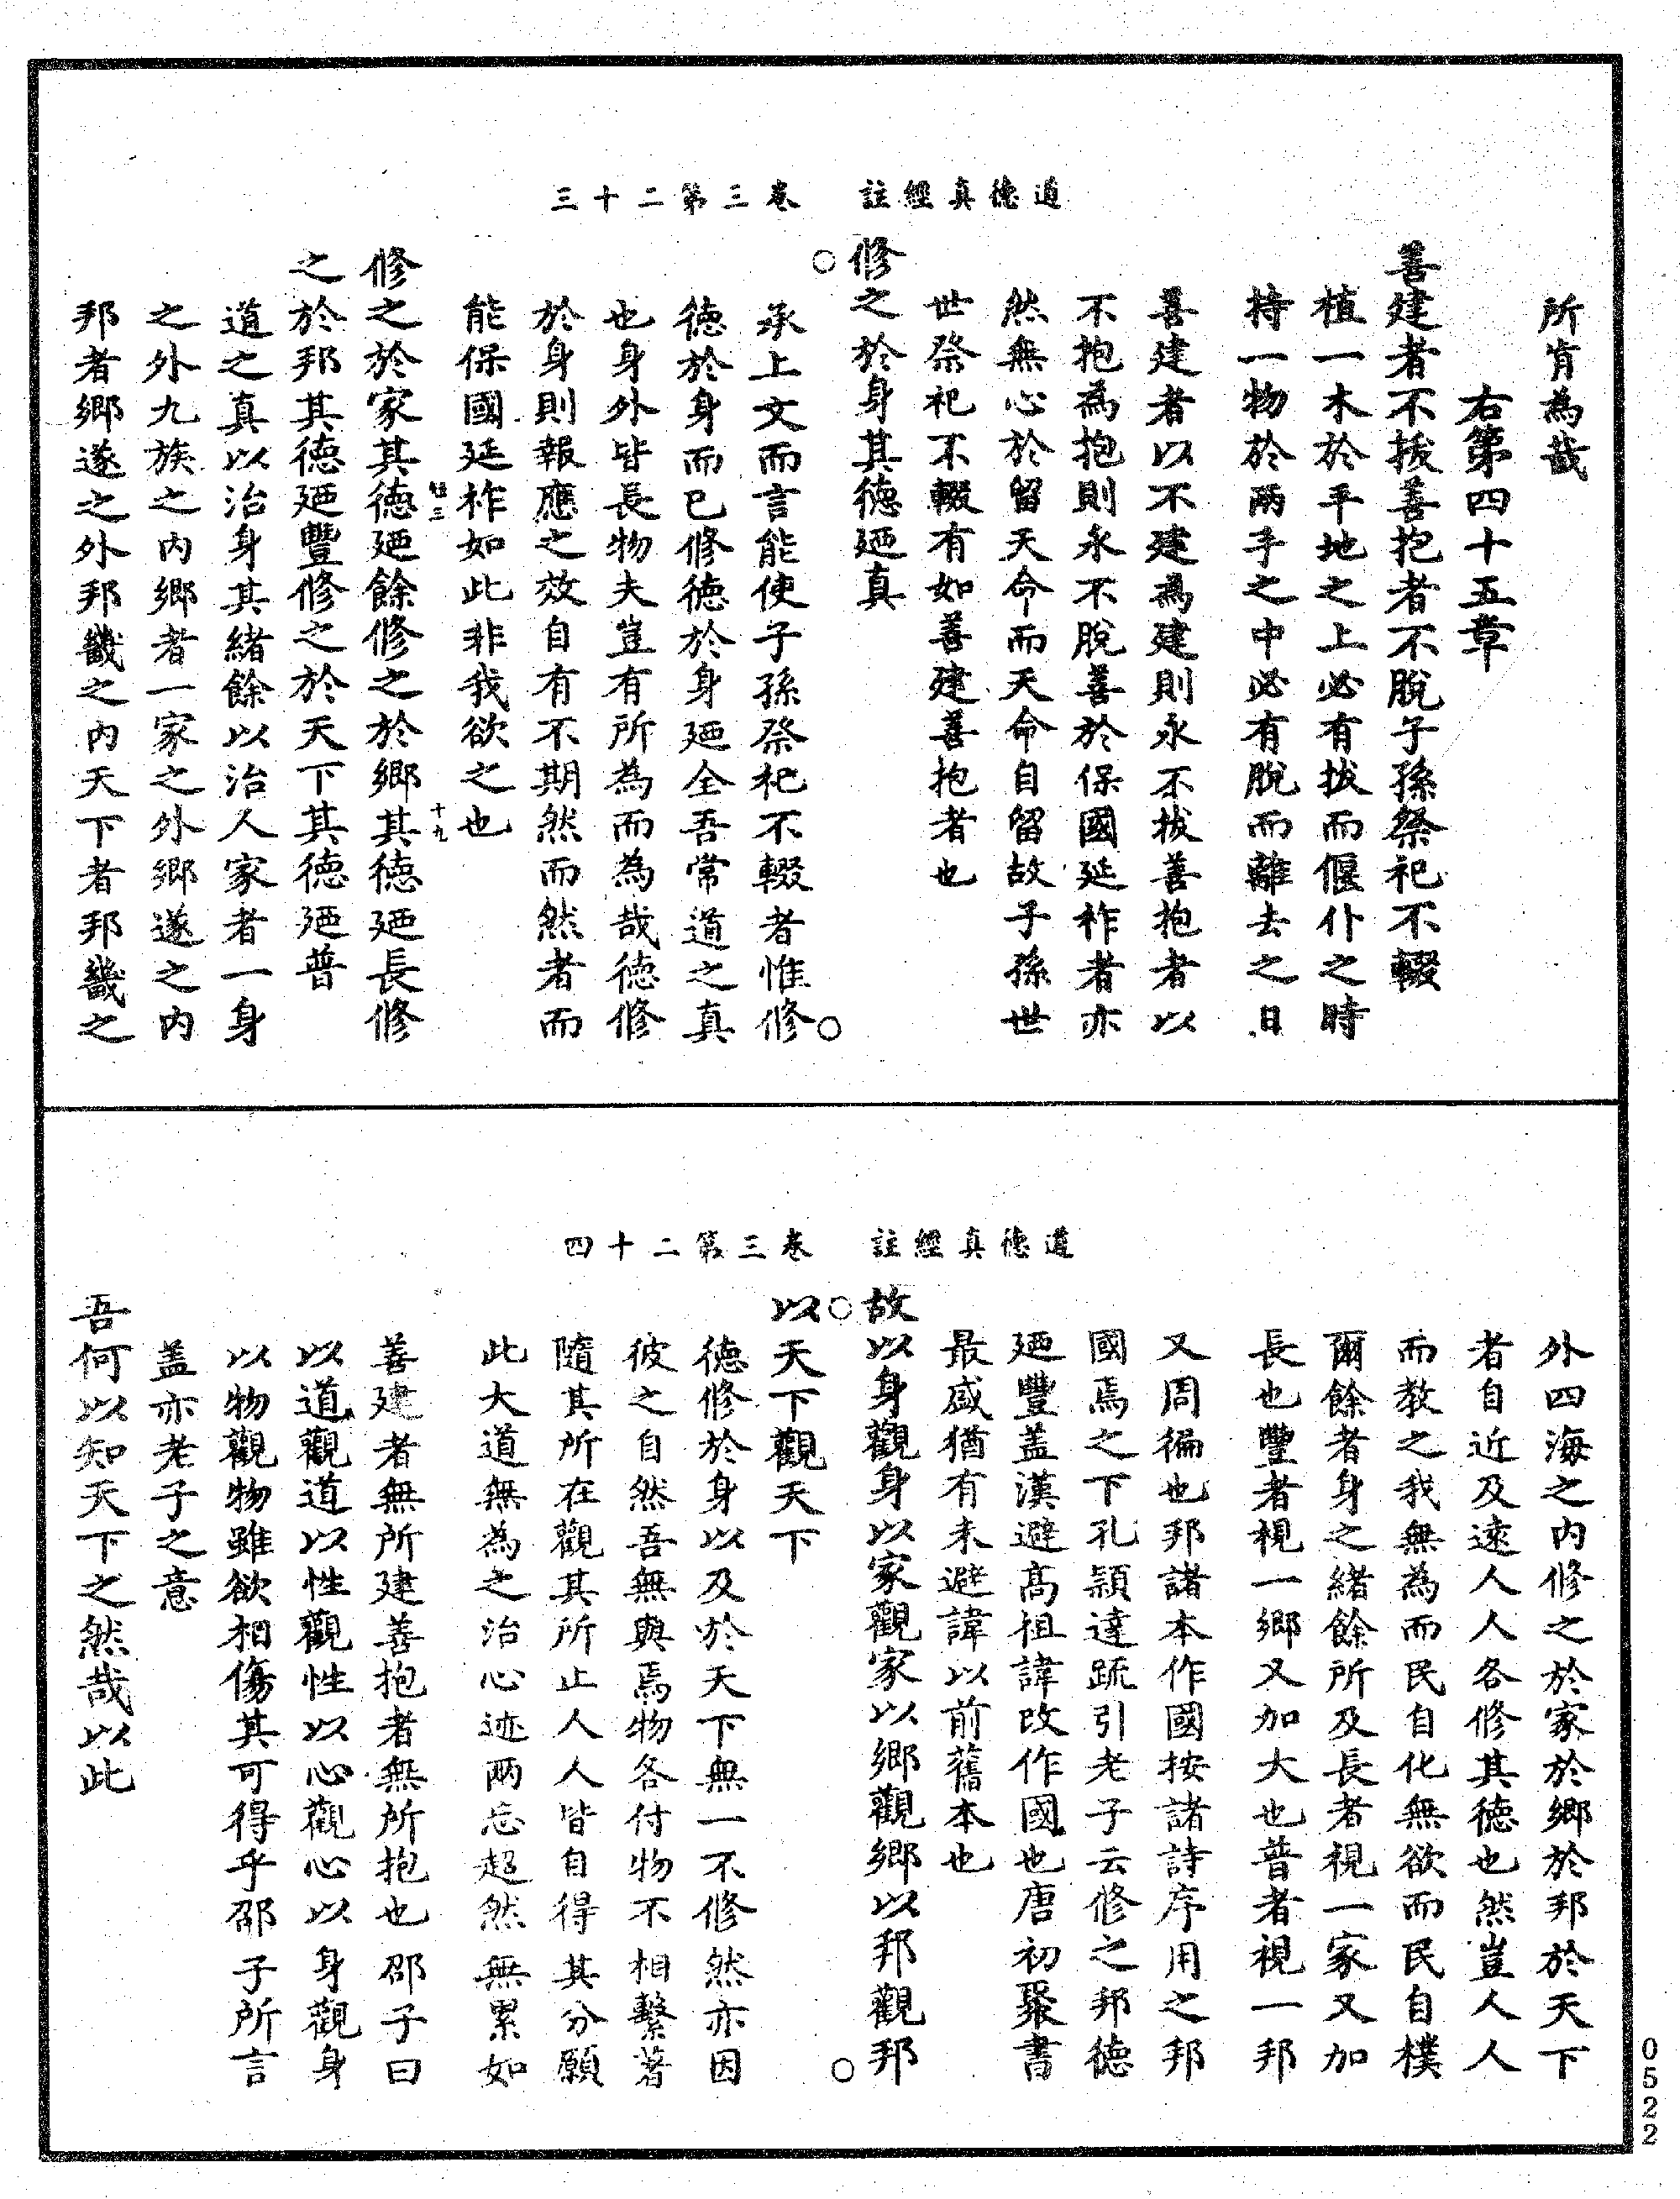 道德真經註　卷三第二十三
所肯為哉
右第四十五章
善建者不拔善抱者不脫子孫祭祀不輟
植一木於平地之上必有拔而偃仆之時
持一物於兩手之中必有脫而離去之日
善建者以不建為建則永不拔善抱者以
不抱為抱則永不脫善於保國延祚者亦
然無心於留天命而天命自留故子孫世
世祭祀不輟有如善建善抱者也
修之於身其德廼真
○
承上文而言能使子孫祭祀不輟者惟修
○
德於身而已修德於身廼全吾常道之真
也身外皆長物夫豈有所為而為哉德修
於身則報應之效自有不期然而然者而
能保國延祚如此非我欲之也
短三
十九
修之於家其德廼餘修之於鄉其德廼長修
之於邦其德廼豐修之於天下其德廼普
道之真以治身其緒餘以治人家者一身
之外九族之內鄉者一家之外鄉遂之內
邦者鄉遂之外邦畿之內天下者邦畿之
道德真經註　卷三第二十四
外四海之內修之於家於鄉於邦於天下
者自近及遠人人各修其德也然豈人人
而教之我無為而民自化無欲而民自樸
爾餘者身之緒餘所及長者視一家又加
長也豐者視一鄉又加大也普者視一邦
又周徧也邦諸本作國按諸詩序用之邦
國焉之下孔穎達疏引老子云修之邦德
廼豐蓋漢避高祖諱改作國也唐初聚書
最盛猶有未避諱以前舊本也
故以身觀身以家觀家以鄉觀鄉以邦觀邦
○
○
以天下觀天下
德修於身以及於天下無一不修然亦因
彼之自然吾無與焉物各付物不相繫著
隨其所在觀其所止人人皆自得其分願
此大道無為之治心迹兩忘超然無累如
善建者無所建善抱者無所抱也邵子曰
以道觀道以性觀性以心觀心以身觀身
以物觀物雖欲相傷其可得乎邵子所言
蓋亦老子之意
吾何以知天下之然哉以此
0522